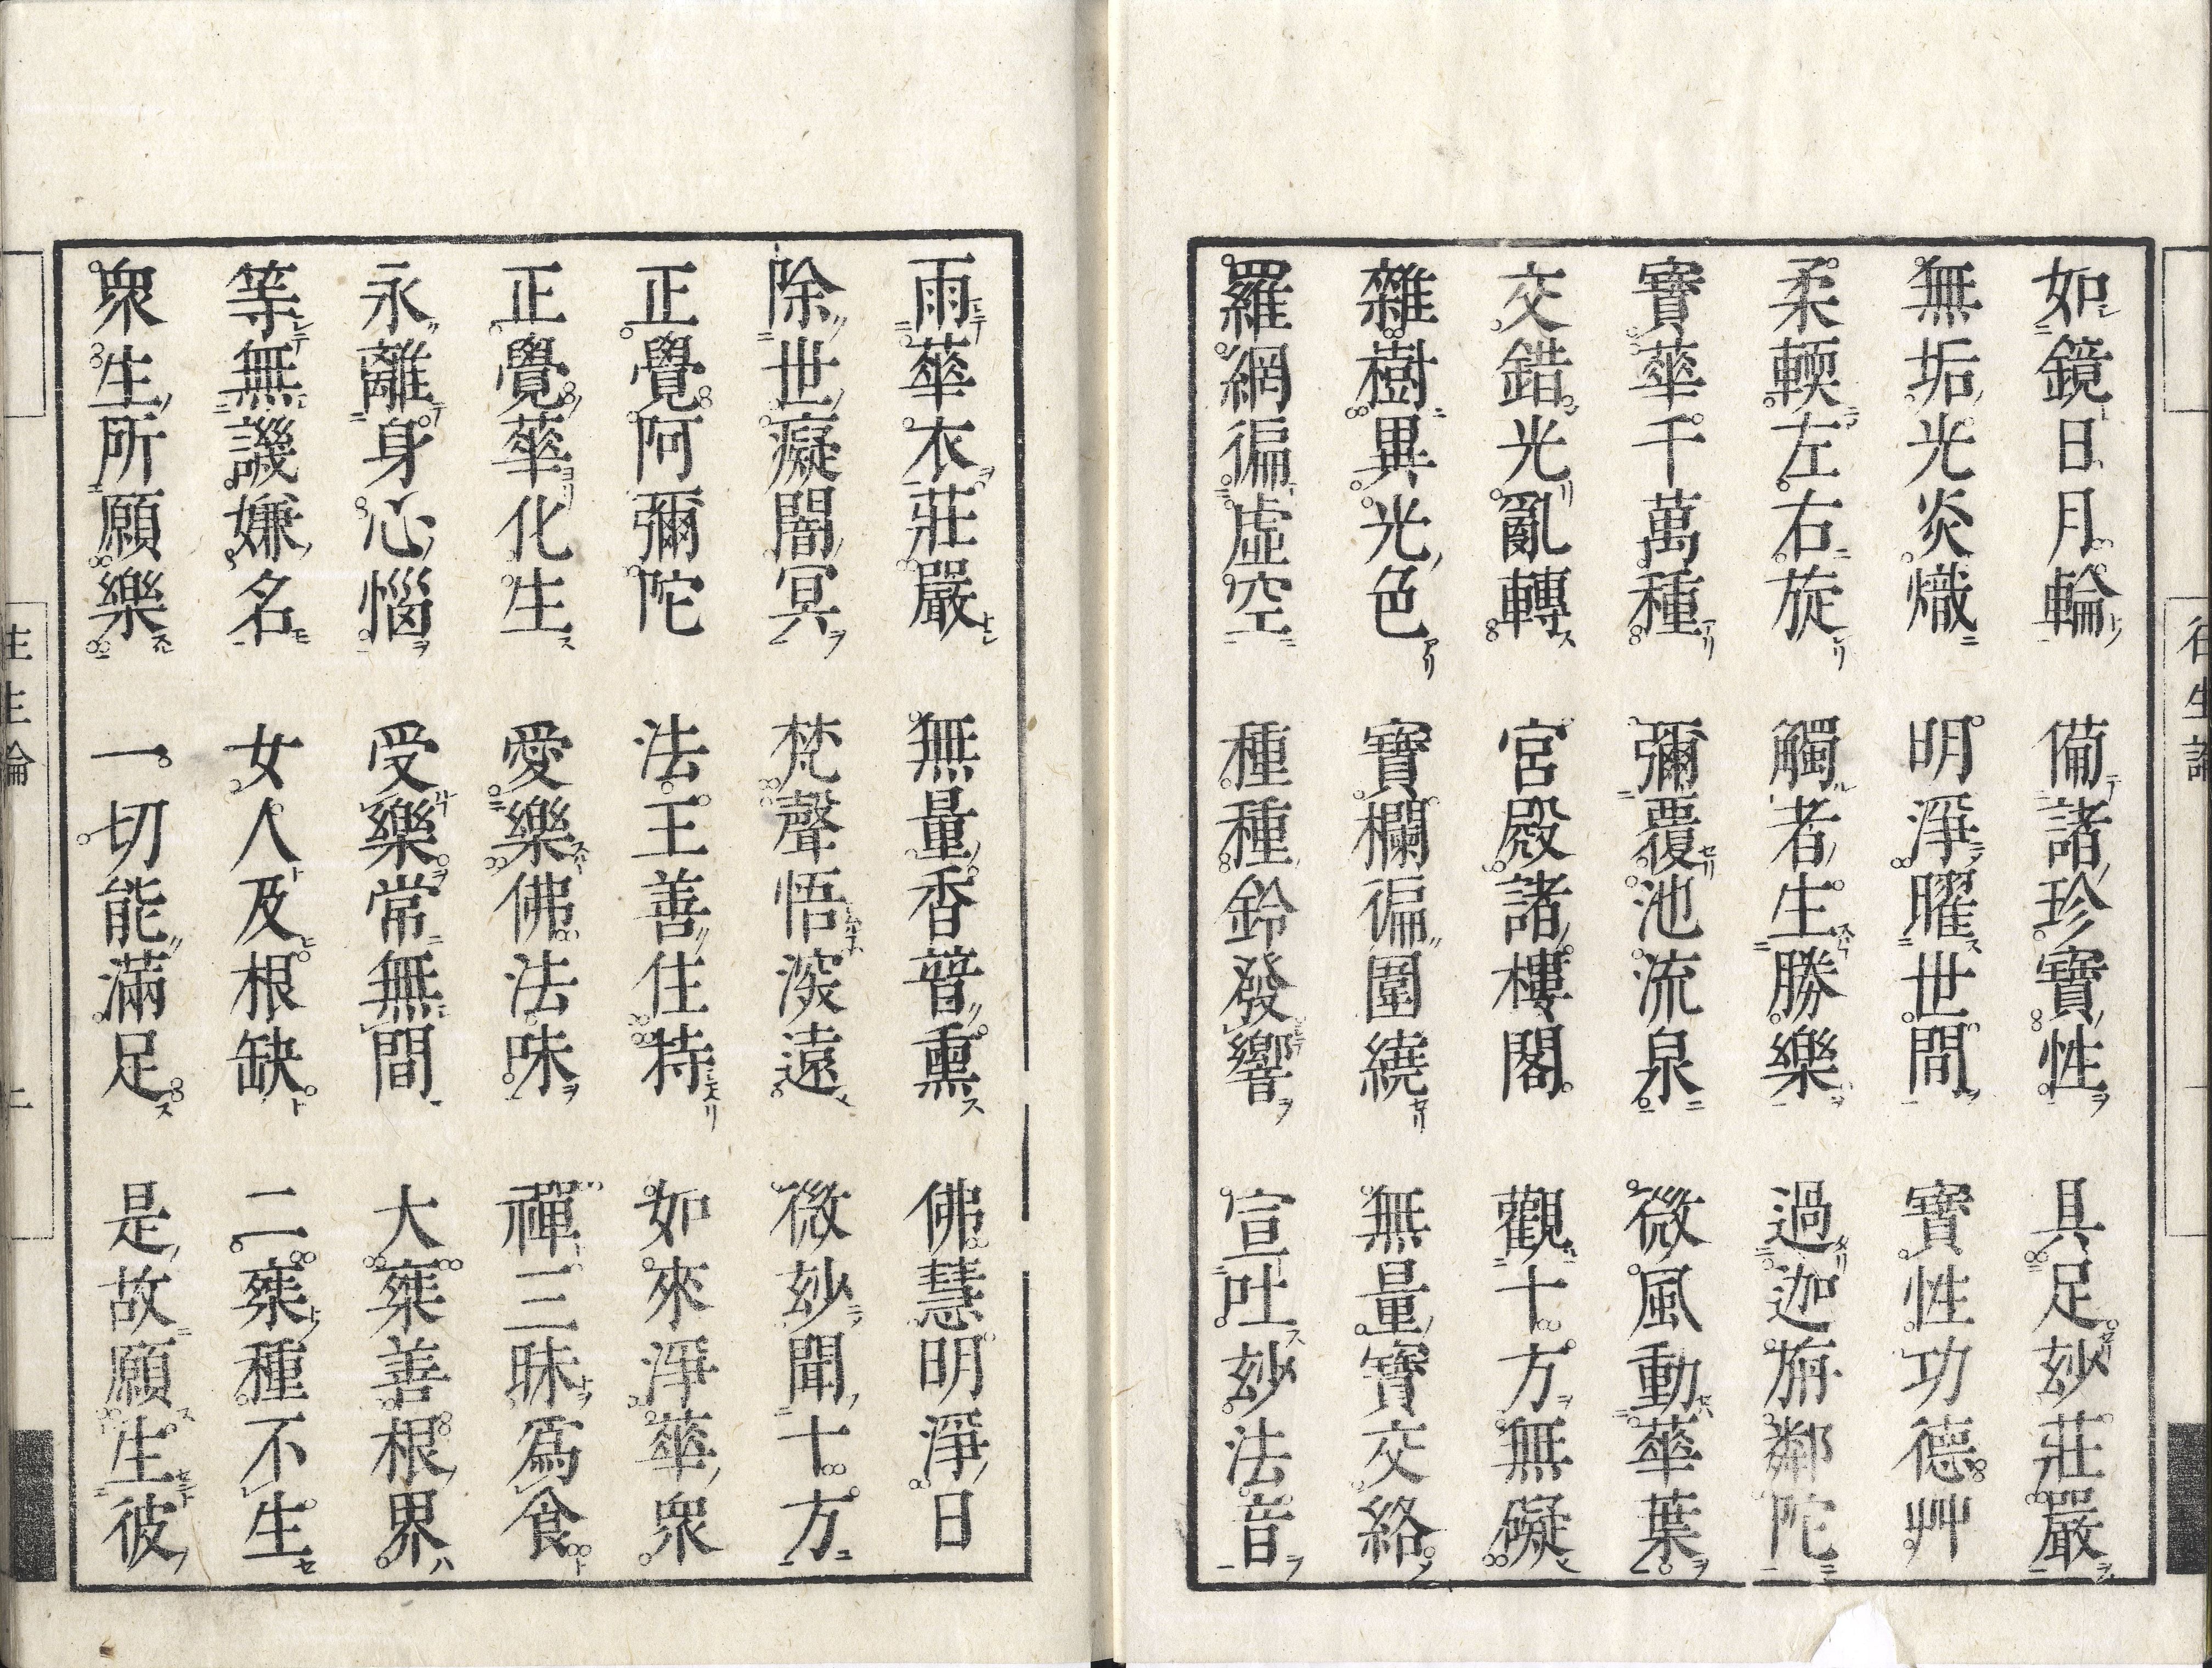 如鏡日月輪　備諸珍寶性　具足玅莊嚴
無垢光炎熾　明淨曜世間　寶性功德艸
柔輭左右旋　觸者生勝樂　過迦旃鄰陀
寶華千萬種　彌覆池流泉　微風動華葉
交錯光亂轉　宮殿諸樓閣　觀十方無礙
雜樹異光色　寶欄徧圍繞　無量寶交絡
羅網徧虛空　種種鈴發響　宣吐玅法音
雨華衣莊嚴　無量香普熏　佛慧明淨日
除世癡闇冥　梵聲悟深遠　微玅聞十方
正覺阿彌陀　法王善住持　如來淨華衆
正覺華化生　愛樂佛法味　禪三昧爲食
永離身心惱　受樂常無間　大乘善根界
等無譏嫌名　女人及根缺　二乘種不生
衆生所願樂　一切能滿足　是故願生彼
往生論